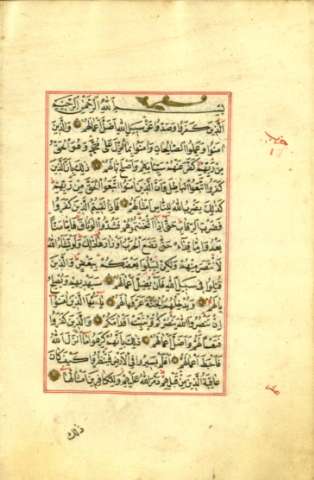 بسم الله الرحمن الرحيم
الذين كفروا وصدوا عن سبيل الله اضل اعمالهم والذين
امنوا وعملوا الصالحات وامنوا بما نزل على محمد وهو الحق
من ربهم كفر عنهم سيئاتهم واصلح بالهم ذلك بان الذين
كفروا اتبعوا الباطل وان الذين امنوا اتبعوا الحق من ربهم
كذلك يضرب الله للناس امثالهم فاذا لقيتم الذين كفروا
فضرب الرقاب حتى اذا اثخنتموهم فشدوا الوثاق فاما منا
بعد واما فداء حتى تضع الحرب اوزارها ذلك ولو يشاء الله
لانتصر منهم ولكن ليبلوا بعضكم ببعض والذين
قتلوا في سبيل الله فلن يضل اعمالهم سيهديهم ويصلح
بالهم ويدخلهم الجنة عرفها لهم يا ايها الذين امنوا
ان تنصروا الله ينصركم ويثبت اقدامكم والذين كفروا
فتعسا لهم واضل اعمالهم ذلك بانهم كرهوا ما انزل الله
فاحبط اعمالهم افلم يسيروا في الارض فينظروا كيف كان
عاقبة الذين من قبلهم دمر الله عليهم وللكافرين امثالها
ذلك